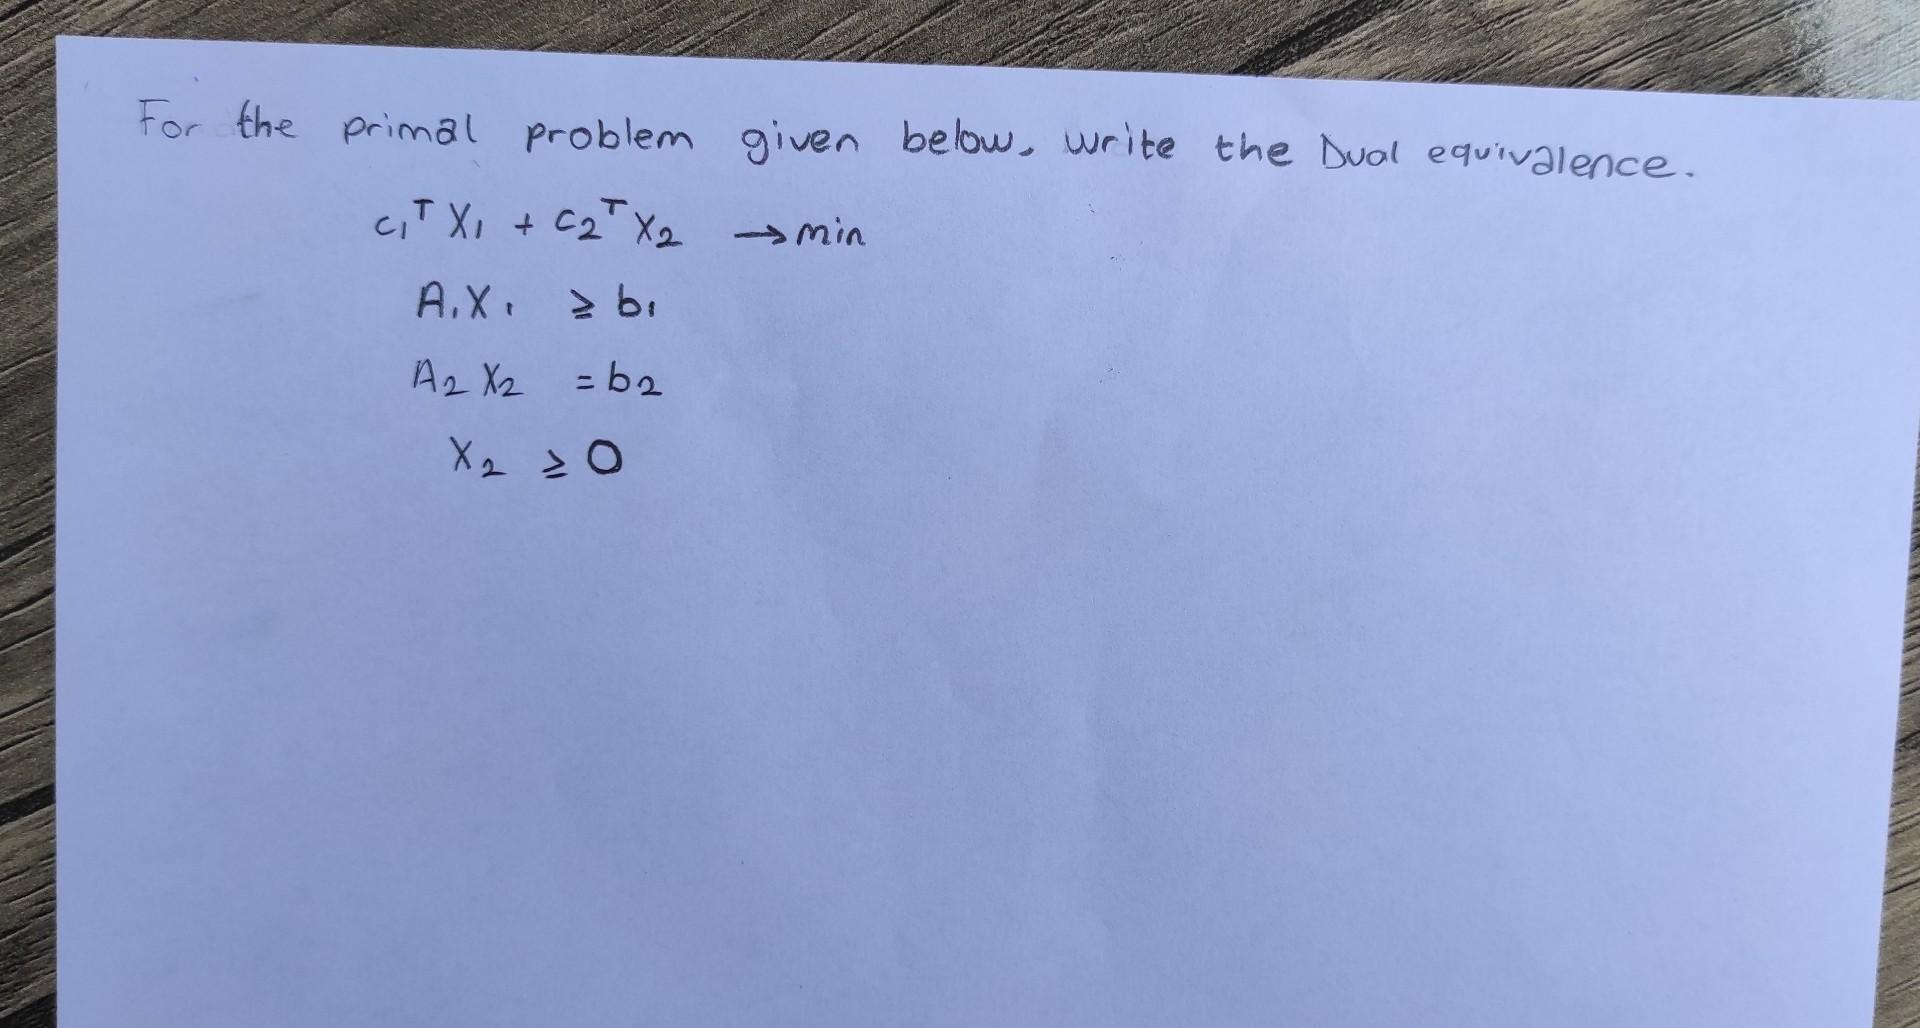 For the primal problem given below, write the Dual equivalence.
c₁ᵀ X₁ + c₂ᵀ X₂ → min
A₁X₁ ≥ b₁
A₂ X₂ = b₂
X₂ ≥ 0